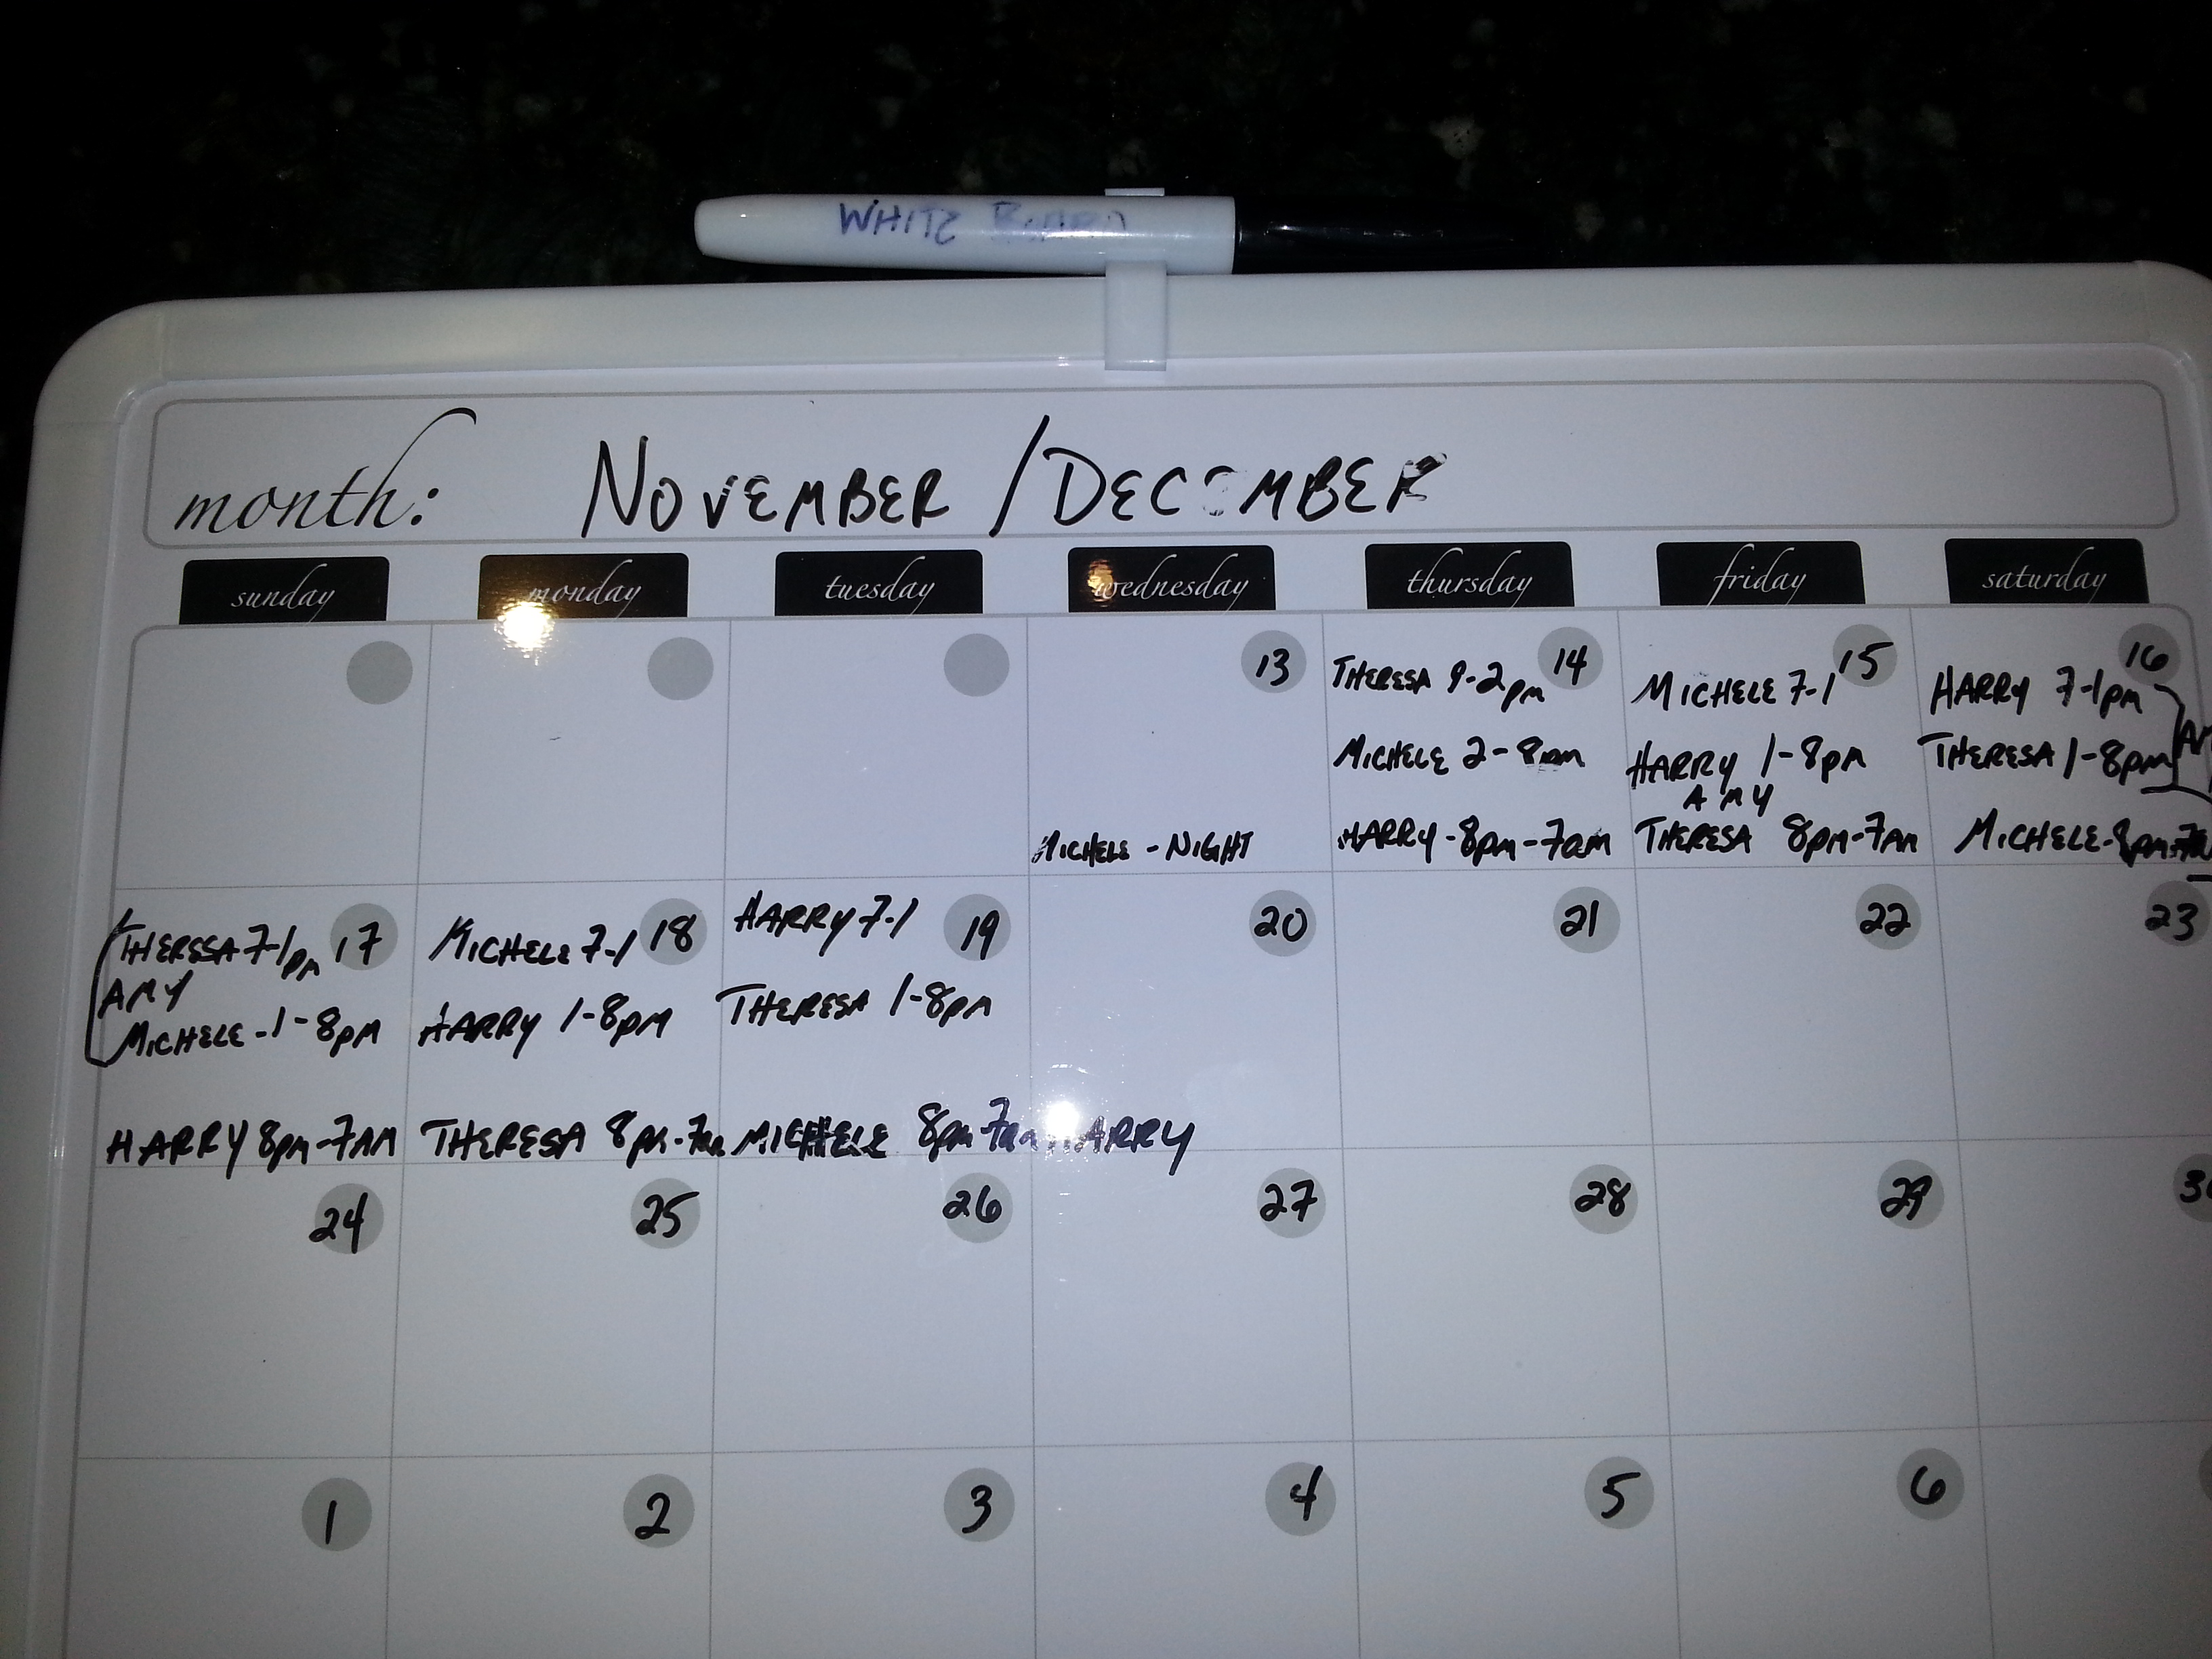 WHITE BOARD
month: NOVEMBER / DECEMBER
sunday monday tuesday wednesday thursday friday saturday
13
MICHELE - NIGHT
14
THERESA 9-2pm
MICHELE 2-8pm
HARRY-8pm-7am
15
MICHELE 7-1
HARRY 1-8pm
AMY
THERESA 8pm-7AM
16
HARRY 7-1pm
THERESA 1-8pm
MICHELE-8pm-
17
THERESA 7-1pm
AMY
MICHELE-1-8pm
HARRY 8pm-7AM
18
MICHELE 7-1
HARRY 1-8pm
THERESA 8pm-7am
19
HARRY 7-1
THERESA 1-8pm
MICHELE 8pm-7am
20
HARRY
21
22
23
24
25
26
27
28
29
1
2
3
4
5
6